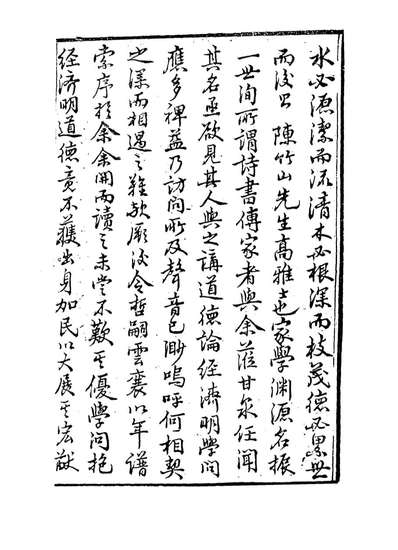 水必源潔而流清木必根深而枝茂德必累世
而後昌陳竹山先生高雅士也家學淵源名振
一世洵所謂詩書傳家者與余蒞甘泉任聞
其名亟欲見其人與之講道德論經濟明學問
應多裨益乃訪問所及聲音已渺嗚呼何相契
之深而相遇之難歟厥後令哲嗣雲襄以年譜
索序於余余開而讀之未嘗不歎其優學問抱
經濟明道德竟不獲出身加民以大展其宏猷